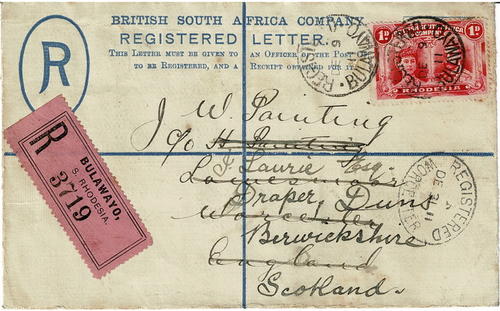 BRITISH SOUTH AFRICA COMPANY
REGISTERED LETTER.
THIS LETTER MUST BE GIVEN TO AN OFFICER OF THE POST
TO BE REGISTERED, AND A RECEIPT OBTAINED FOR IT.
R
REGISTERED BULAWAYO
1D 1D
RHODESIA
J W. Painting
c/o H. Painting
J. Laurie Esq.
Draper, Duns
Worcester
Berwickshire
England
Scotland.
R
BULAWAYO,
S. RHODESIA.
3719
REGISTERED
DE 3 11
WORCESTER